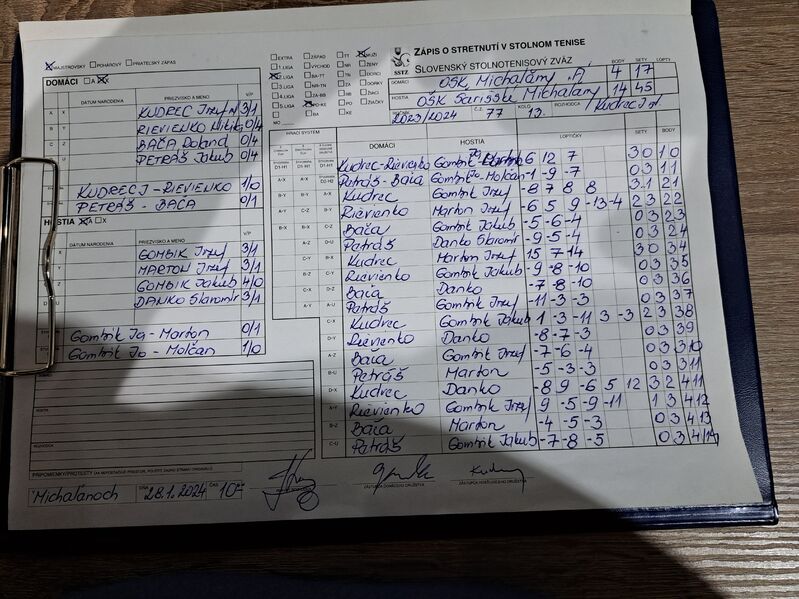 ZÁPIS O STRETNUTÍ V STOLNOM TENISE
SLOVENSKÝ STOLNOTENISOVÝ ZVÄZ
SSTZ
MAJSTROVSKÝ POHÁROVÝ PRIATEĽSKÝ ZÁPAS
EXTRA ZÁPAD TT MUŽI
1.LIGA VÝCHOD NR ŽENY
2.LIGA BA-TT TN DORCI
3.LIGA NR-TN ZA
4.LIGA ZA-BB BB ŽIACI
5.LIGA PO-KE PO ŽIAČKY
MO BA KE
BODY SETY LOPTY
DOMÁCI OŠK Michaľany "A" 4 17
HOSTIA OŠK Šarišské Michaľany 14 45
2023/2024 Č.Z. 77 KOLO 13. ROZHODCA Kudrec J st.
DOMÁCI A X
DÁTUM NARODENIA PRIEZVISKO A MENO V/P
KUDREC Jozef 3/1
RIEVIENKO Nikita 0/4
BAČA Roland 0/4
PETRÁŠ Jakub 0/4
KUDREC J - RIEVIENKO 1/0
PETRÁŠ - BAČA 0/1
HOSTIA A X
DÁTUM NARODENIA PRIEZVISKO A MENO V/P
GOMBIK Jozef 3/1
MARTON Jozef 3/1
GOMBIK Jakub 4/0
DANKO Slavomír 3/1
Gombik Ja - Marton 0/1
Gombik Jo - Molčan 1/0
HRACÍ SYSTÉM DOMÁCI HOSTIA LOPTIČKY SETY BODY
Kudrec-Rievienko 6 12 7 3 0 1 0
Petráš-Bača Gombik Jo-Molčan -1 -9 -7 0 3 1 1
Kudrec Gombik Jozef -8 7 8 8 3 1 2 1
Rievienko Marton Jozef -6 5 9 -13 -4 2 3 2 2
Bača Gombik Jakub -5 -6 -4 0 3 2 3
Petráš Danko Slavomír -9 -5 -4 0 3 2 4
Kudrec Marton Jozef 15 7 14 3 0 3 4
Rievienko Gombik Jakub -9 -8 -10 0 3 3 5
Bača Danko -7 -8 -10 0 3 3 6
Petráš Gombik Jozef -11 -3 -3 0 3 3 7
Kudrec Gombik Jakub -1 3 -11 3 -3 2 3 3 8
Rievienko Danko -8 -7 -3 0 3 3 9
Bača Gombik Jozef -7 -6 -4 0 3 3 10
Petráš Marton -5 -3 -3 0 3 3 11
Kudrec Danko -8 9 -6 5 12 3 2 4 11
Rievienko Gombik Jozef 9 -5 -9 -11 1 3 4 12
Bača Marton -4 -5 -3 0 3 4 13
Petráš Gombik Jakub -7 -8 -5 0 3 4 14
HOSTIA
ROZHODCA
PRIPOMIENKY/PROTESTY
Michaľanoch DŇA 28.1.2024 ČAS 10
ZÁSTUPCA DOMÁCEHO DRUŽSTVA
ZÁSTUPCA HOSŤUJÚCEHO DRUŽSTVA